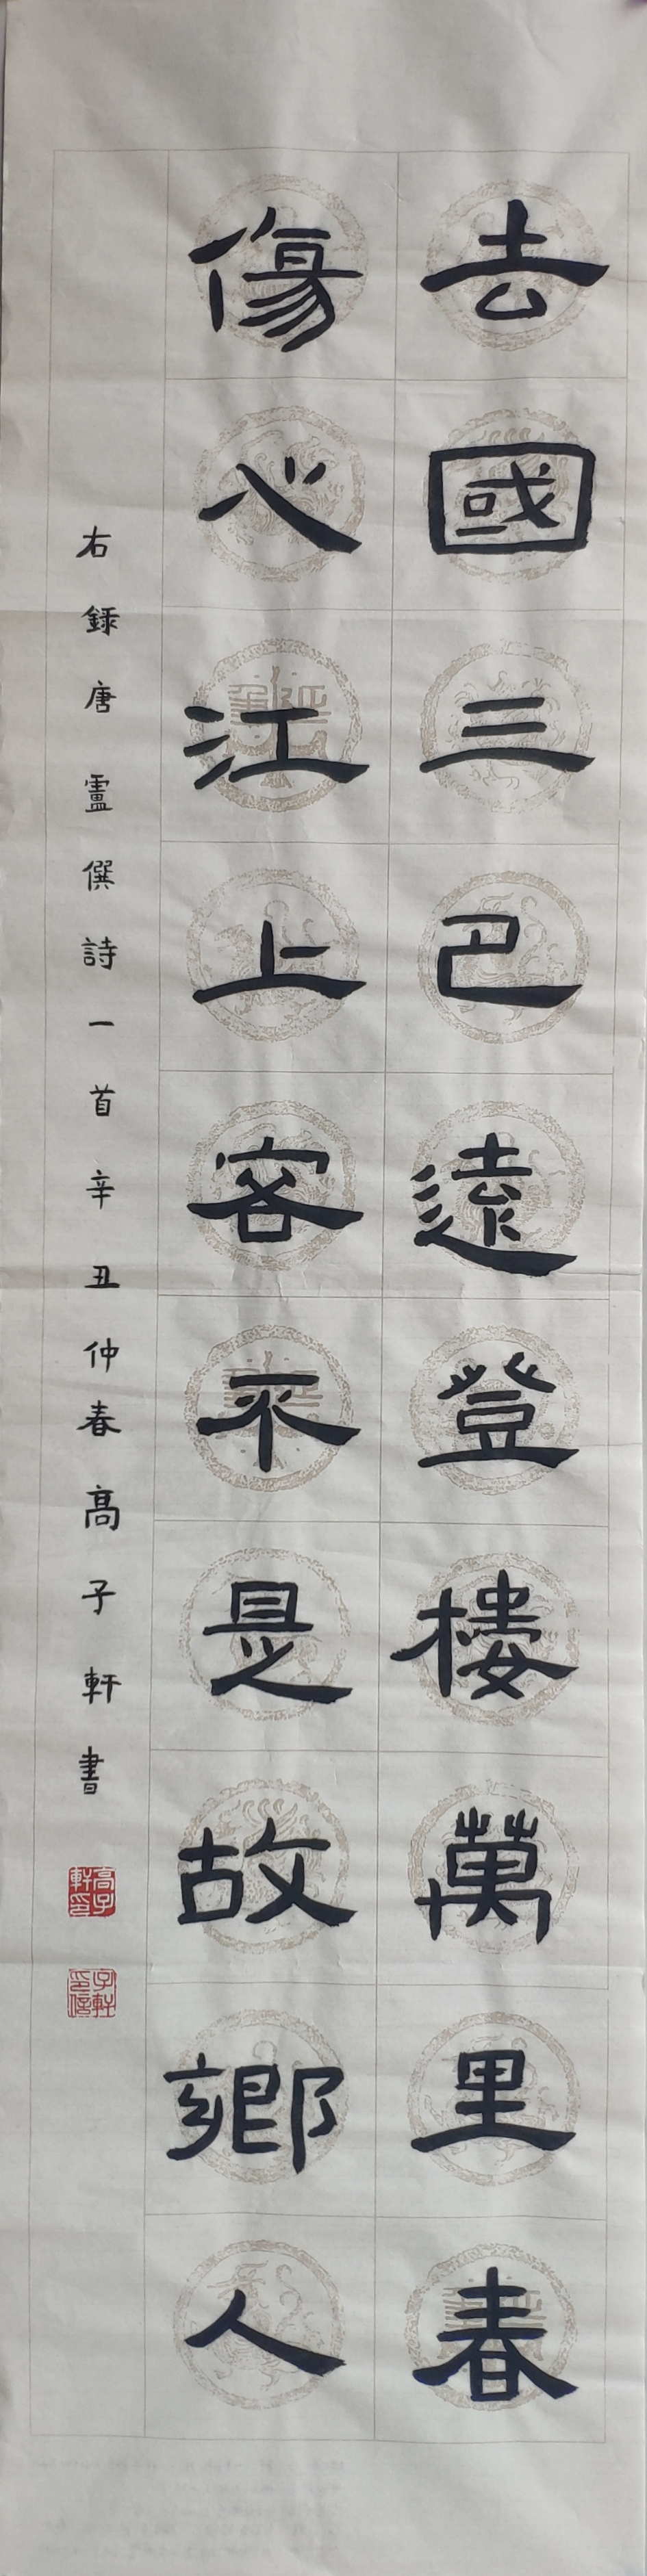 去國三巴遠登樓萬里春
傷心江上客不是故鄉人
右録唐盧僎詩一首辛丑仲春高子軒書
高子軒印
子軒印信